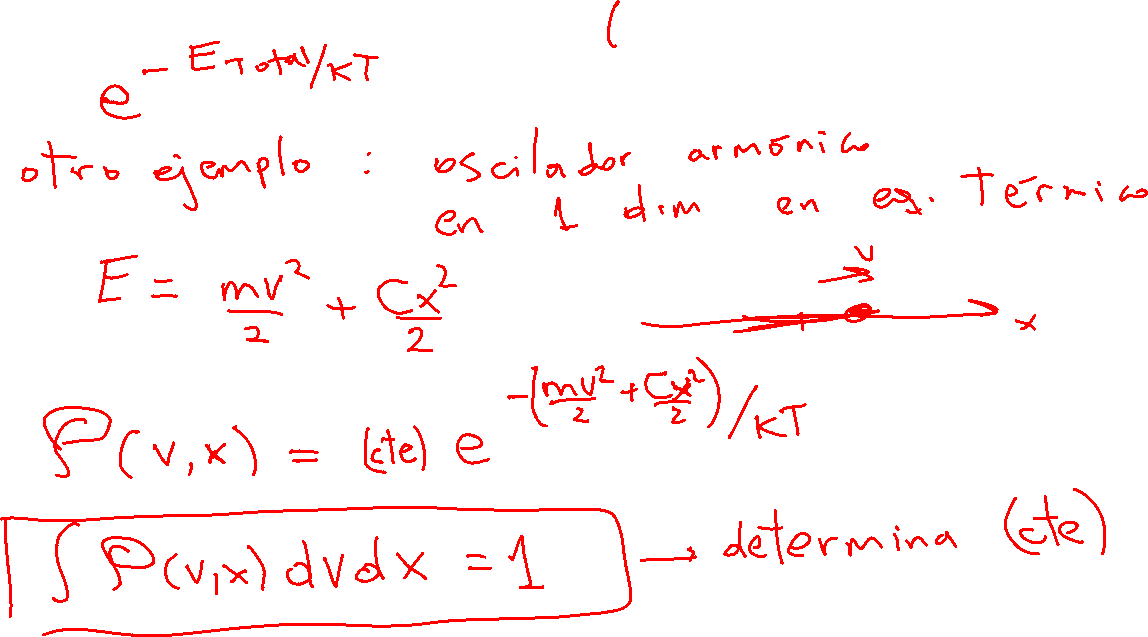 (
e^{-E_{Total}/KT}
otro ejemplo : oscilador armónico
en 1 dim en eq. Térmico
E = \frac{mv^2}{2} + \frac{Cx^2}{2}
v
x
P(v,x) = (cte) e^{-(\frac{mv^2}{2} + \frac{Cx^2}{2})/KT}
∫ P(v,x) dv dx = 1 → determina (cte)